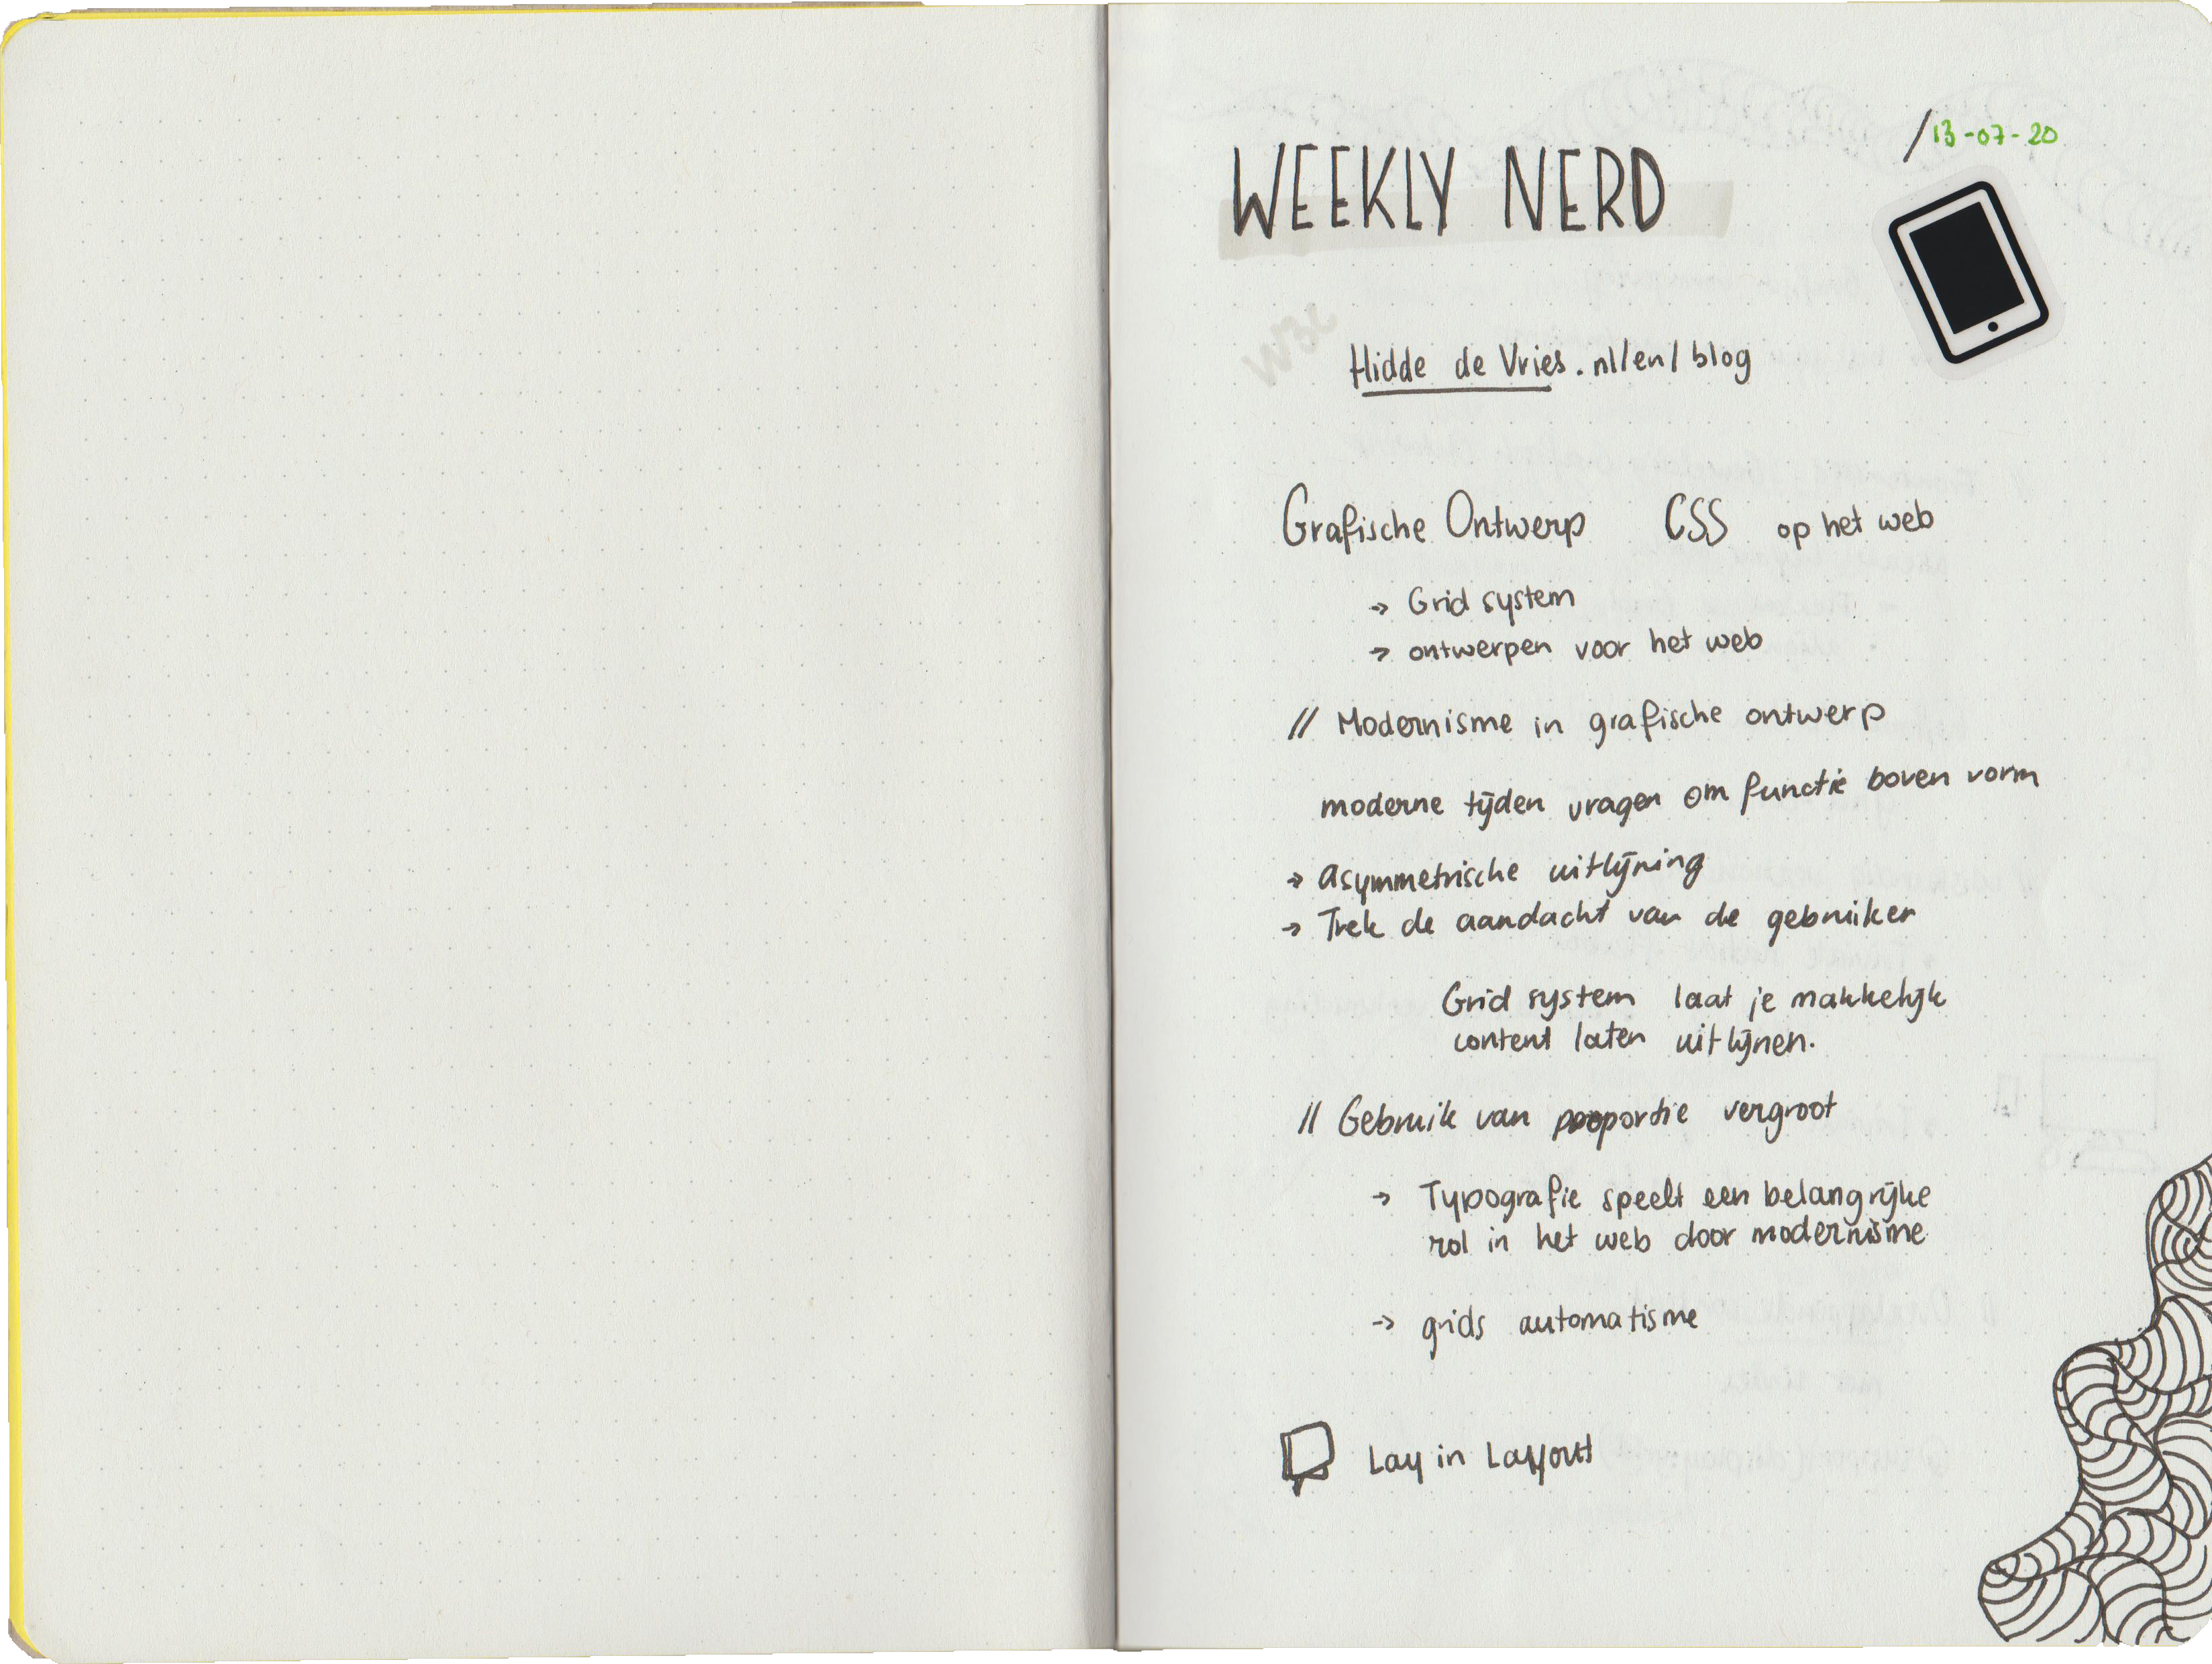 /13-07-20
WEEKLY NERD
W3C
Hidde de Vries.nl/en/blog
Grafische Ontwerp CSS op het web
→ Grid system
→ ontwerpen voor het web
// Modernisme in grafische ontwerp
moderne tijden vragen om functie boven vorm
→ Asymmetrische uitlijning
→ Trek de aandacht van de gebruiker
Grid system laat je makkelijk
content laten uitlijnen.
// Gebruik van proportie vergroot
→ Typografie speelt een belangrijke
rol in het web door modernisme
→ grids automatisme
Lay in Layout